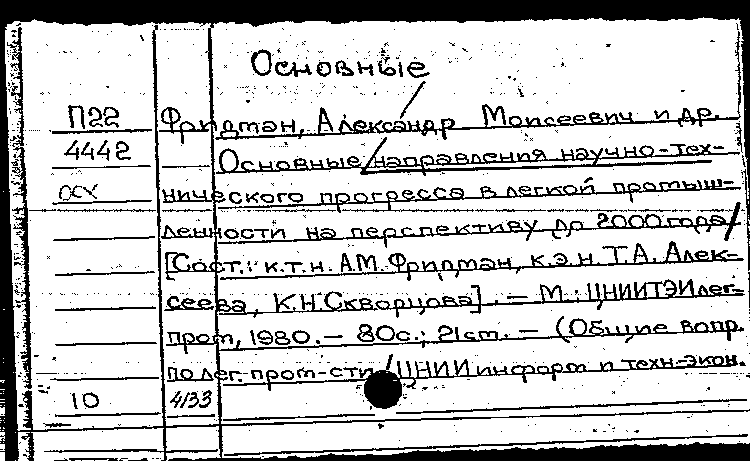 Основные
П22 Фридман, Александр Моисеевич и др.
4442 Основные/направления научно-тех-
осх нического прогресса в легкой промыш-
ленности на перспективу до 2000 года/
[Сост.: к.т.н. А.М. Фридман, к.э.н. Т.А. Алек-
сеева, К.Н. Скворцова]. — М.: ЦНИИТЭИлег-
пром, 1980. — 80с.; 21 см. — (Общие вопр.
по лег. пром-сти/ЦНИИ информ и техн-экон.
10 4133